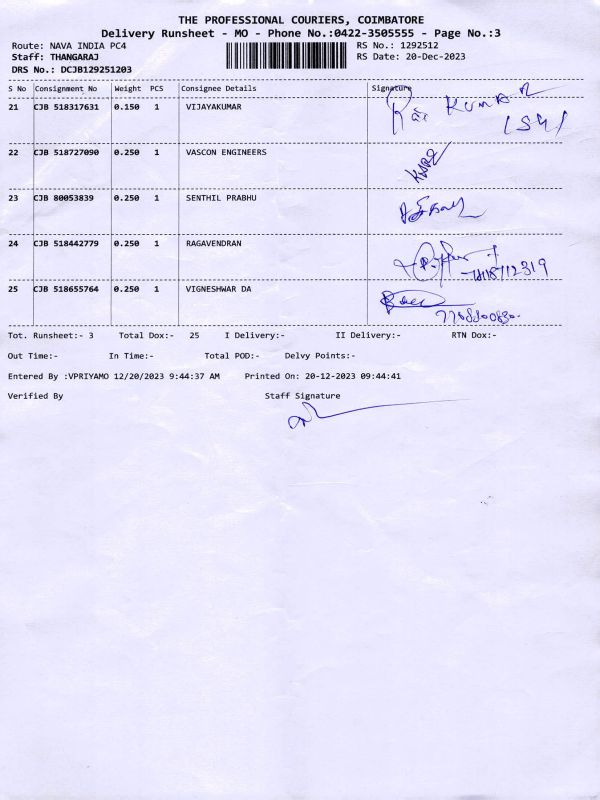 THE PROFESSIONAL COURIERS, COIMBATORE
Delivery Runsheet - MO - Phone No.:0422-3505555 - Page No.:3
Route: NAVA INDIA PC4 RS No.: 1292512
Staff: THANGARAJ RS Date: 20-Dec-2023
DRS No.: DCJB129251203
S No Consignment No Weight PCS Consignee Details Signature
21 CJB 518317631 0.150 1 VIJAYAKUMAR
KUMAR
22 CJB 518727090 0.250 1 VASCON ENGINEERS
23 CJB 80053839 0.250 1 SENTHIL PRABHU
24 CJB 518442779 0.250 1 RAGAVENDRAN
25 CJB 518655764 0.250 1 VIGNESHWAR DA
Tot. Runsheet:- 3 Total Dox:- 25 I Delivery:- II Delivery:- RTN Dox:-
Out Time:- In Time:- Total POD:- Delvy Points:-
Entered By :VPRIYAMO 12/20/2023 9:44:37 AM Printed On: 20-12-2023 09:44:41
Verified By Staff Signature